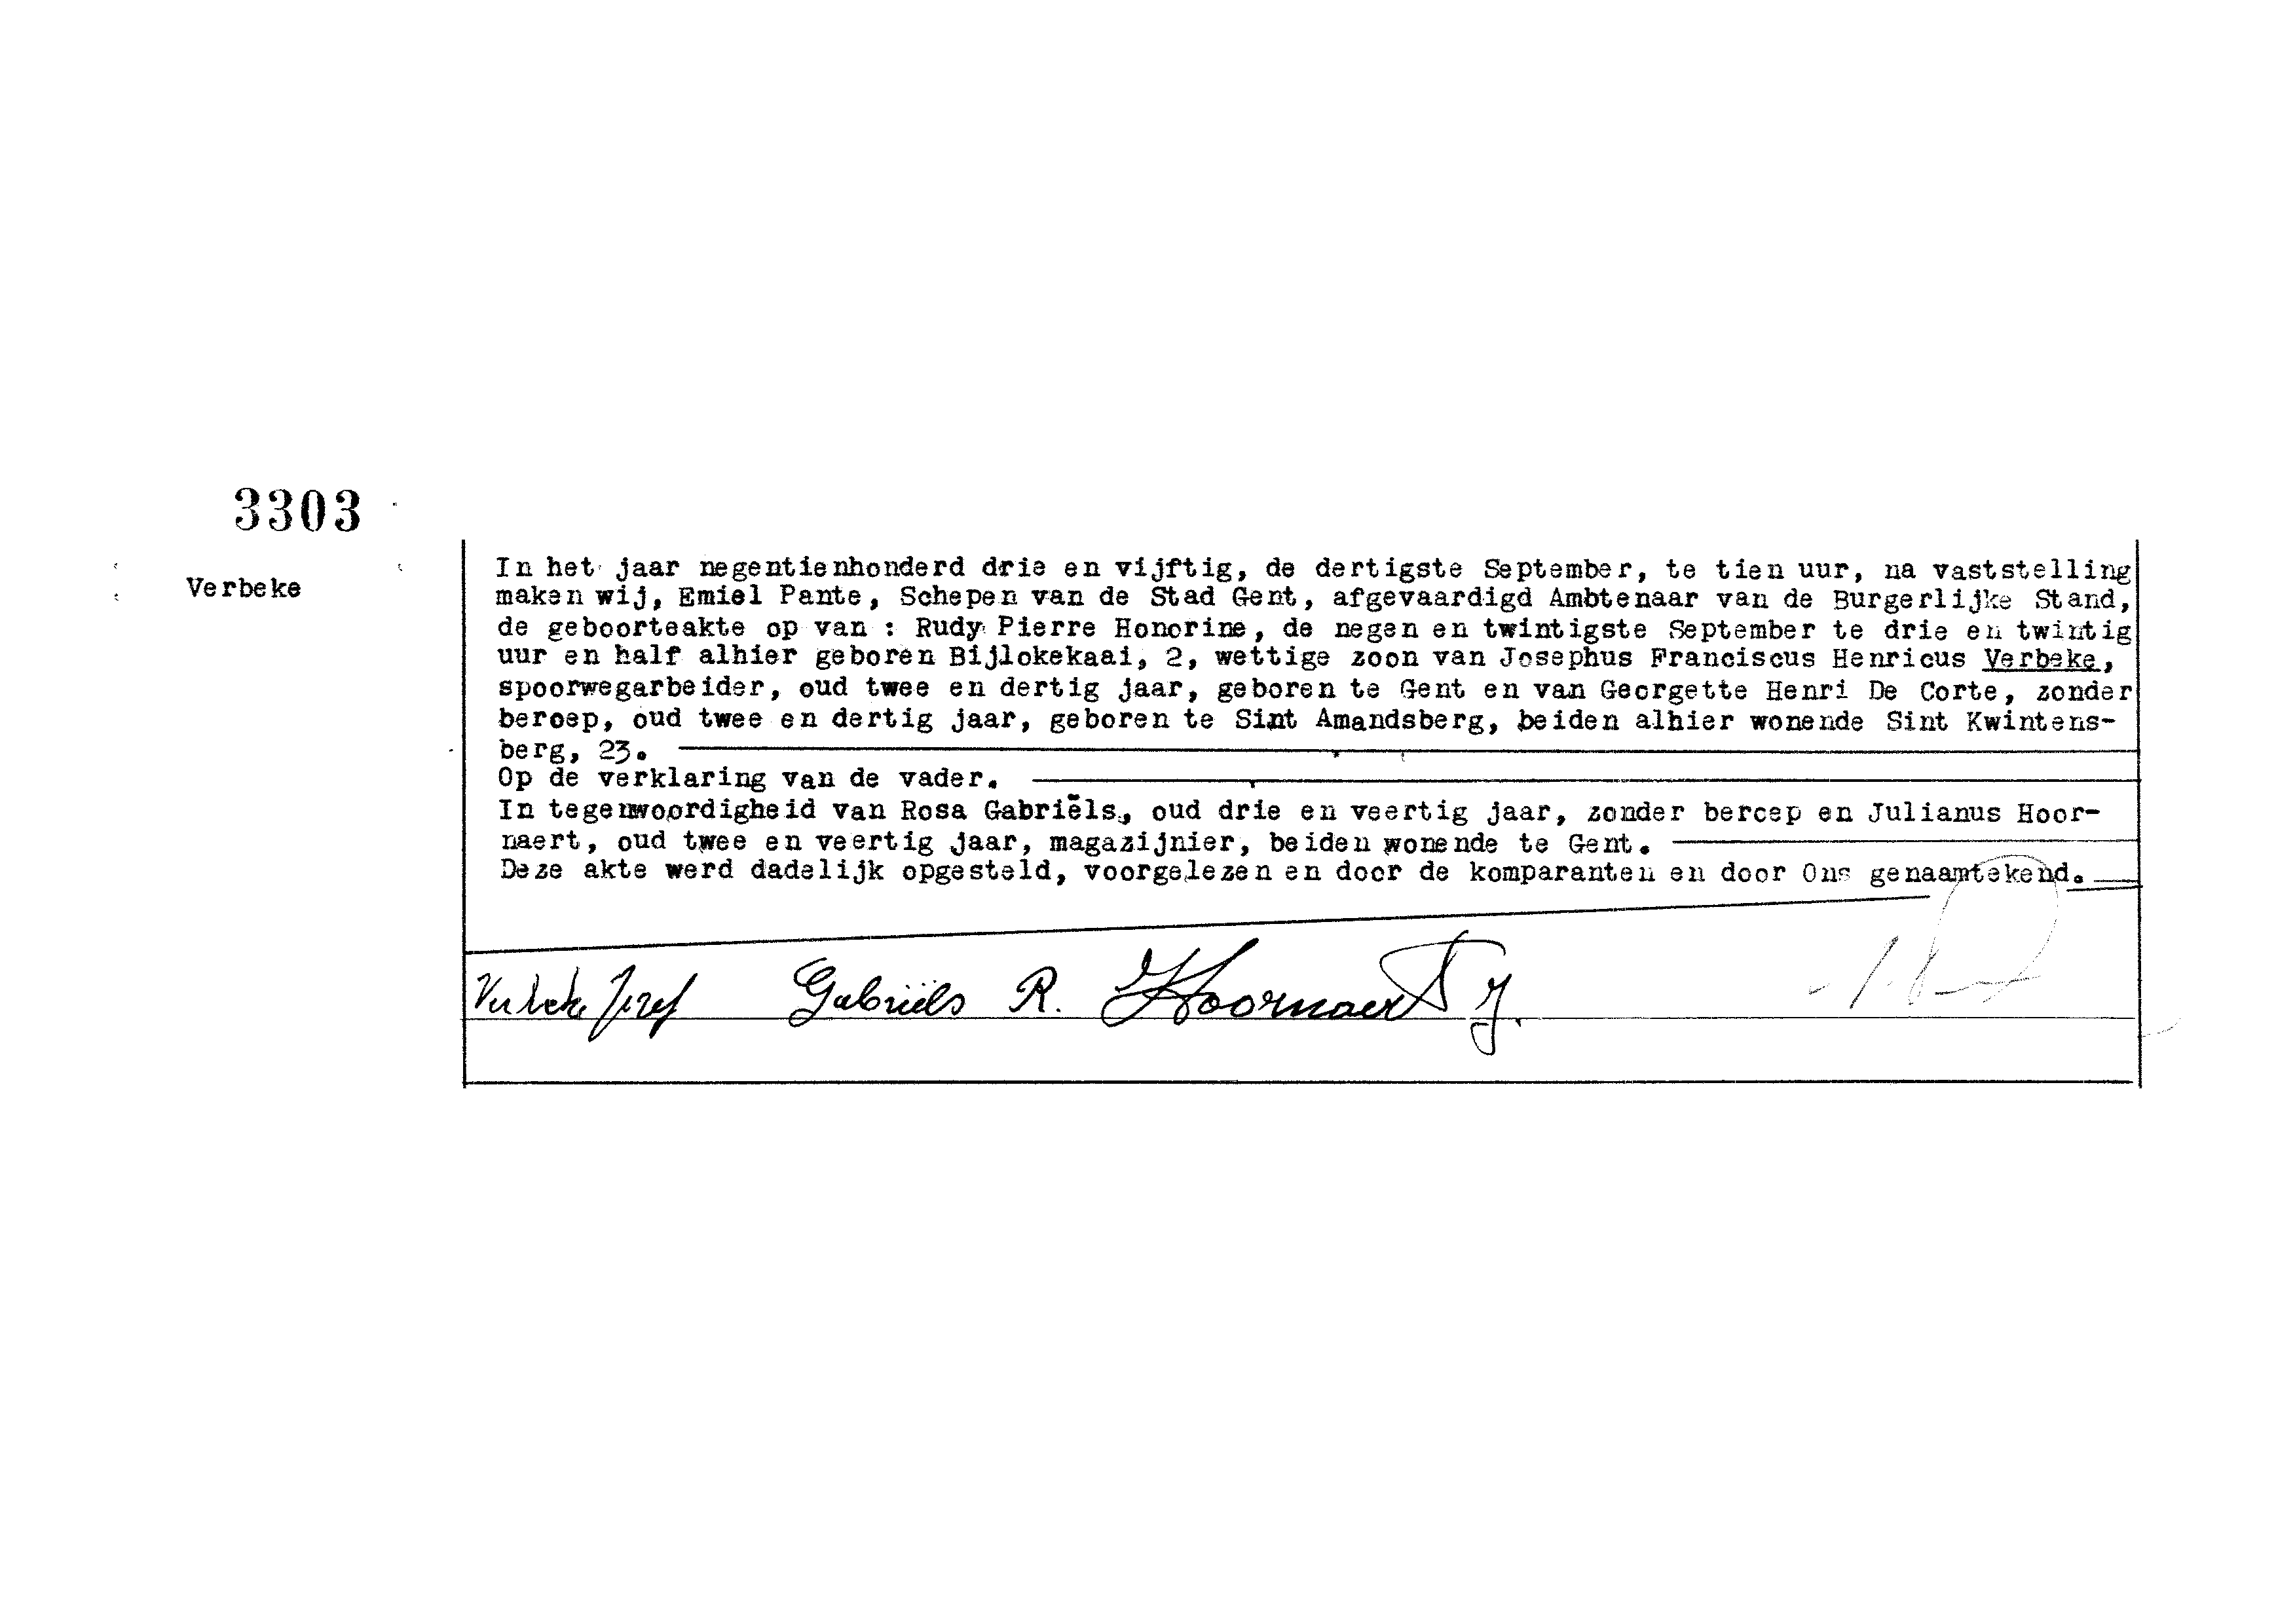 3303
Verbeke
In het jaar negentienhonderd drie en vijftig, de dertigste September, te tien uur, na vaststelling
maken wij, Emiel Pante, Schepen van de Stad Gent, afgevaardigd Ambtenaar van de Burgerlijke Stand,
de geboorteakte op van : Rudy Pierre Honorine, de negen en twintigste September te drie en twintig
uur en half alhier geboren Bijlokekaai, 2, wettige zoon van Josephus Franciscus Henricus Verbeke,
spoorwegarbeider, oud twee en dertig jaar, geboren te Gent en van Georgette Henri De Corte, zonder
beroep, oud twee en dertig jaar, geboren te Sint Amandsberg, beiden alhier wonende Sint Kwintens-
berg, 23.
Op de verklaring van de vader.
In tegenwoordigheid van Rosa Gabriëls, oud drie en veertig jaar, zonder beroep en Julianus Hoor-
naert, oud twee en veertig jaar, magazijnier, beiden wonende te Gent.
Deze akte werd dadelijk opgesteld, voorgelezen en door de komparanten en door Ons genaamtekend.
Verbeke Jozef Gabriëls R. Hoornaert J.